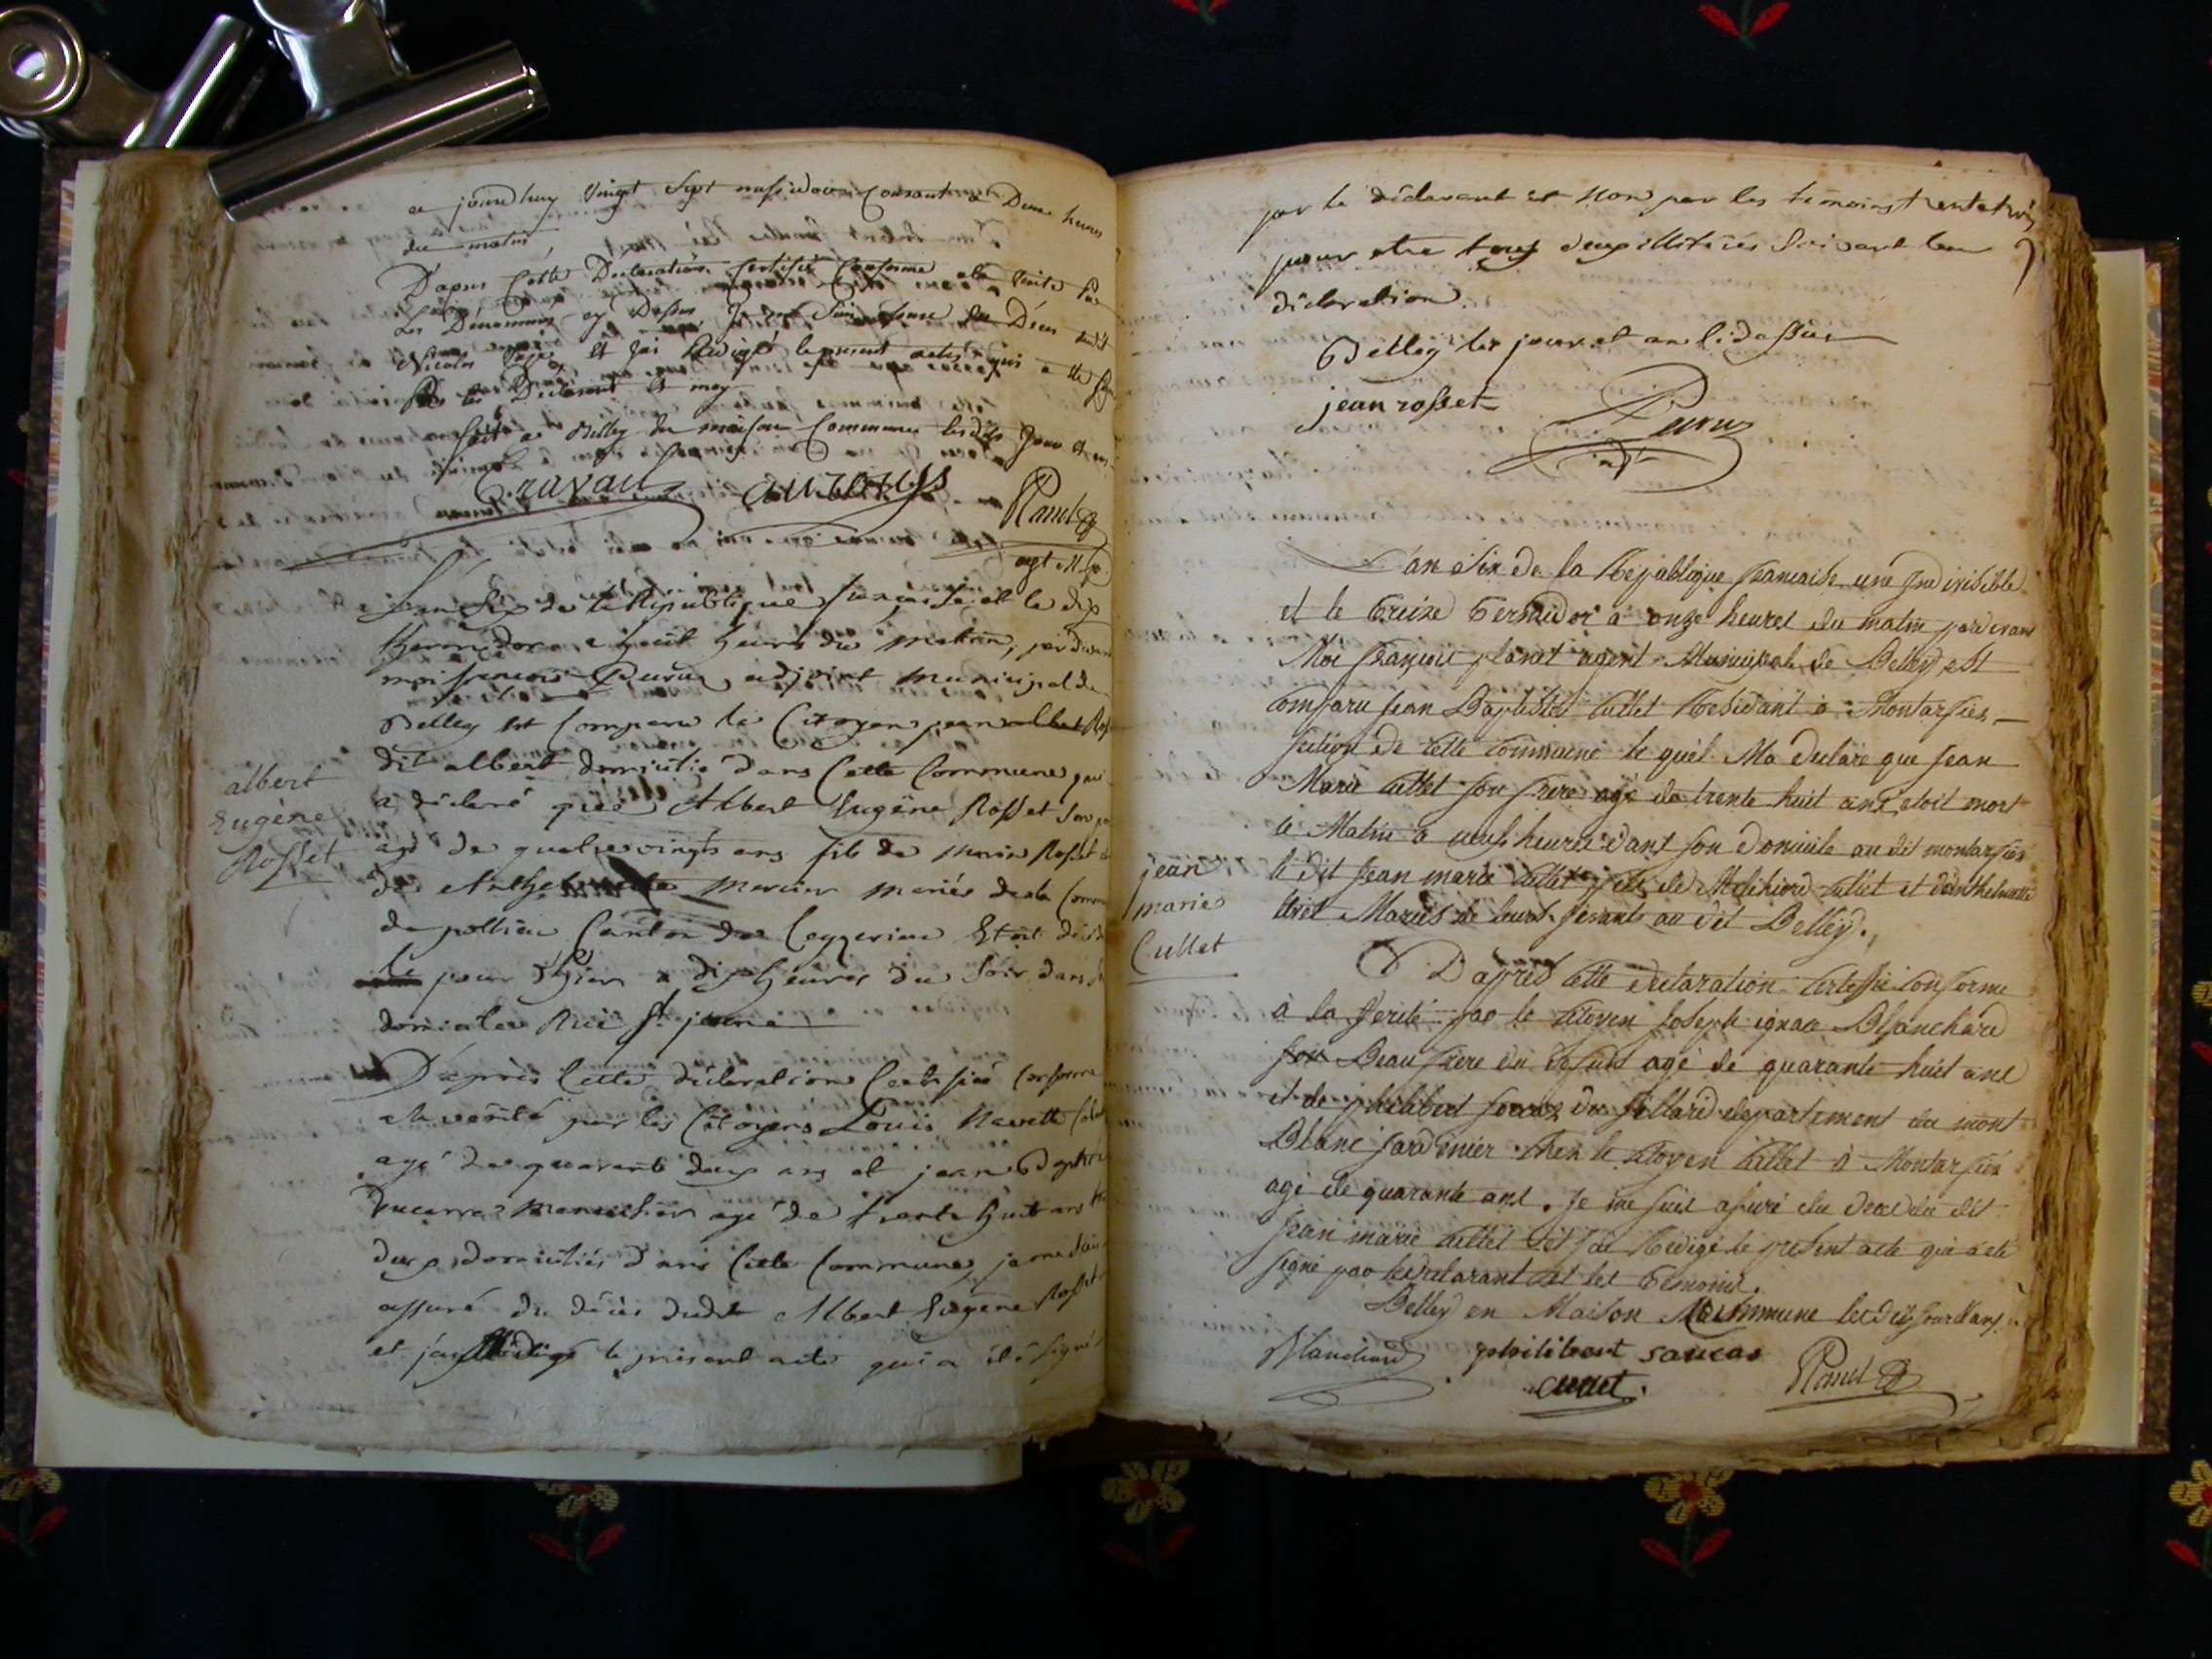 ce jourdhuy vingt Sept messidor Courant a Deux heures
du matin,
D'apres Cette Declaration Certifié Conforme a la Verité par
Les Dénommés cy Dessus, Je me Suis assuré du Déces dudit
Nicolas et Jai Redigé le present acte qui a été signé
Par les Declarant et moy
fait a Belley En maison Commune lesdits Jour et an
Travail aurouys
Planet
agt M.
L'an Six de la République francaise et le dix
thermidor a huit heures du matin, par devant
moi francois Peruz adjoint municipal de
Belley est Comparu le Citoyen jean Rosset
dit albert domicilié dans Cette Commune qui
a déclaré que Albert Eugène Rosset son pere
agé de quatrevingts ans fils de Marin Rosset et
de Anthelmette Mercier mariés de la Commune
de pollieu Canton de Ceyzerieu Etoit décédé
le jour d'hier a dix heures du Soir dans son
domicile Rue St. jeanne
albert
Eugène
Rosset
D'après Cette déclaration Certifié Conforme
a la verité par les Citoyens Louis Navette
agé de quarante deux ans et jean Baptiste
Ducarre menuisier agé de trente huit ans tous
deux domiciliés dans Cette Commune, je me Suis
assuré du décès dudit Albert Eugène Rosset
et j'ay Rédigé le présent acte qui a été signé
par le déclarant et Non par les témoins
pour etre tous deux illitérés Suivant leur
déclaration.
Belley les jour et an Cidessus
jean rosset Peruz
adj.
L'an Six de la République francaise une Indivisible
et le treize termidor à onze heures du matin pardevant
Moi François planet agent Municipale de Belley est
comparu Jean Baptiste Cullet Residant à Montarfier
section de cette commune le quel Ma declaré que Jean
Marie Cullet son frere agé de trente huit ans etoit mort
ce Matin a neuf heures dans son domicile au dit montarfier
le dit Jean marie Cullet fils de Melchiord Cullet et d'anthelmette
Mariés de leurs vivants au dit Belley.
jean
marie
Cullet
D'apres cette declaration certifié conforme
à la Verité par le citoyen Joseph ignace Blanchard
son Beau frere du defunt agé de quarante huit ans
et de philibert du villard departement du mont
Blanc jardinier chez le citoyen Cullet à Montarfier
agé de quarante ans. Je me suis assuré du deces du dit
Jean marie Cullet et J'ai Redigé le present acte qui a eté
signé par le declarant et les temoins.
Belley en Maison Commune lesdits Jour & an.
Blanchard philibert
Cullet. Planet